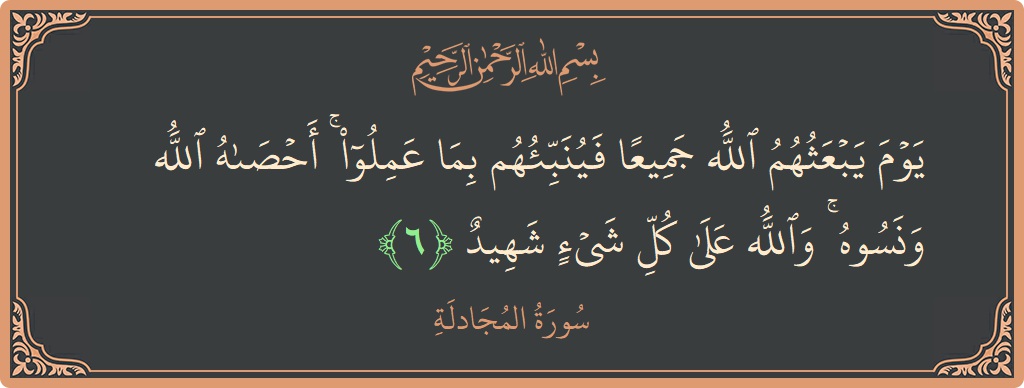 بِسْمِ اللهِ الرَّحْمٰنِ الرَّحِيْمِ
يَوْمَ يَبْعَثُهُمُ ٱللَّهُ جَمِيعًا فَيُنَبِّئُهُم بِمَا عَمِلُوٓا۟ ۚ أَحْصَىٰهُ ٱللَّهُ
وَنَسُوهُ ۚ وَٱللَّهُ عَلَىٰ كُلِّ شَىْءٍ شَهِيدٌ ﴿٦﴾
سُورَةُ المُجَادلَةِ